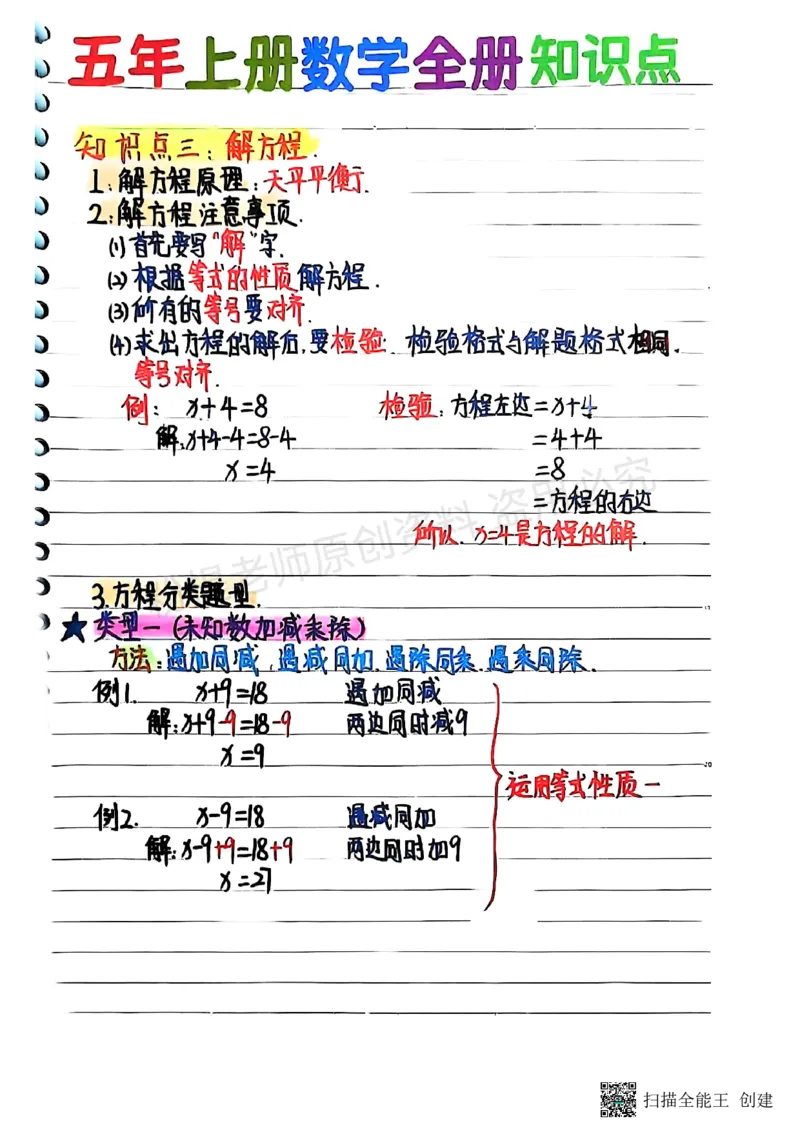 五年上册数学全册知识点
知识点三：解方程.
1.解方程原理：天平平衡.
2.解方程注意事项.
(1)首先要写“解”字.
(2)根据等式的性质解方程.
(3)所有的等号要对齐.
(4)求出方程的解后,要检验. 检验格式与解题格式相同.
等号对齐.
例： x+4=8 检验：方程左边=x+4
解:x+4-4=8-4 =4+4
x=4 =8
=方程的右边
所以. x=4是方程的解.
老师原创资料 盗用必究
3.方程分类题型.
★类型一(未知数加减乘除)
方法：遇加同减,遇减同加.遇除同乘.遇乘同除.
例1. x+9=18 遇加同减
解:x+9-9=18-9 两边同时减9
x=9
运用等式性质一
例2. x-9=18 遇减同加
解:x-9+9=18+9 两边同时加9
x=27
扫描全能王 创建